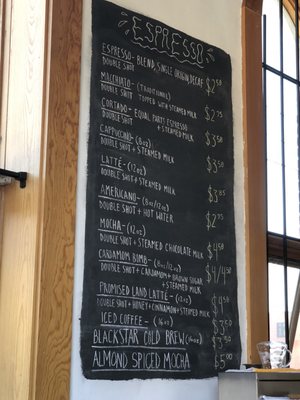 ESPRESSO
ESPRESSO - BLEND, SINGLE ORIGIN, DECAF
DOUBLE SHOT $2.50
MACCHIATO - (TRADITIONAL)
DOUBLE SHOT TOPPED WITH STEAMED MILK $2.75
CORTADO - EQUAL PARTS ESPRESSO
DOUBLE SHOT + STEAMED MILK $3.00
CAPPUCCINO - (8oz)
DOUBLE SHOT + STEAMED MILK $3.50
LATTÉ - (12oz)
DOUBLE SHOT + STEAMED MILK $3.85
AMERICANO - (8oz/12oz)
DOUBLE SHOT + HOT WATER $2.75
MOCHA - (12oz)
DOUBLE SHOT + STEAMED CHOCOLATE MILK $4.50
CARDAMOM BOMB - (8oz/12oz)
DOUBLE SHOT + CARDAMOM + BROWN SUGAR $4/4.50
+ STEAMED MILK
PROMISED LAND LATTÉ - (12oz)
DOUBLE SHOT + HONEY + CINNAMON + STEAMED MILK $4.50
ICED COFFEE - (16oz) $3.50
BLACKSTAR COLD BREW (16oz) $3.50
ALMOND SPICED MOCHA $5.00